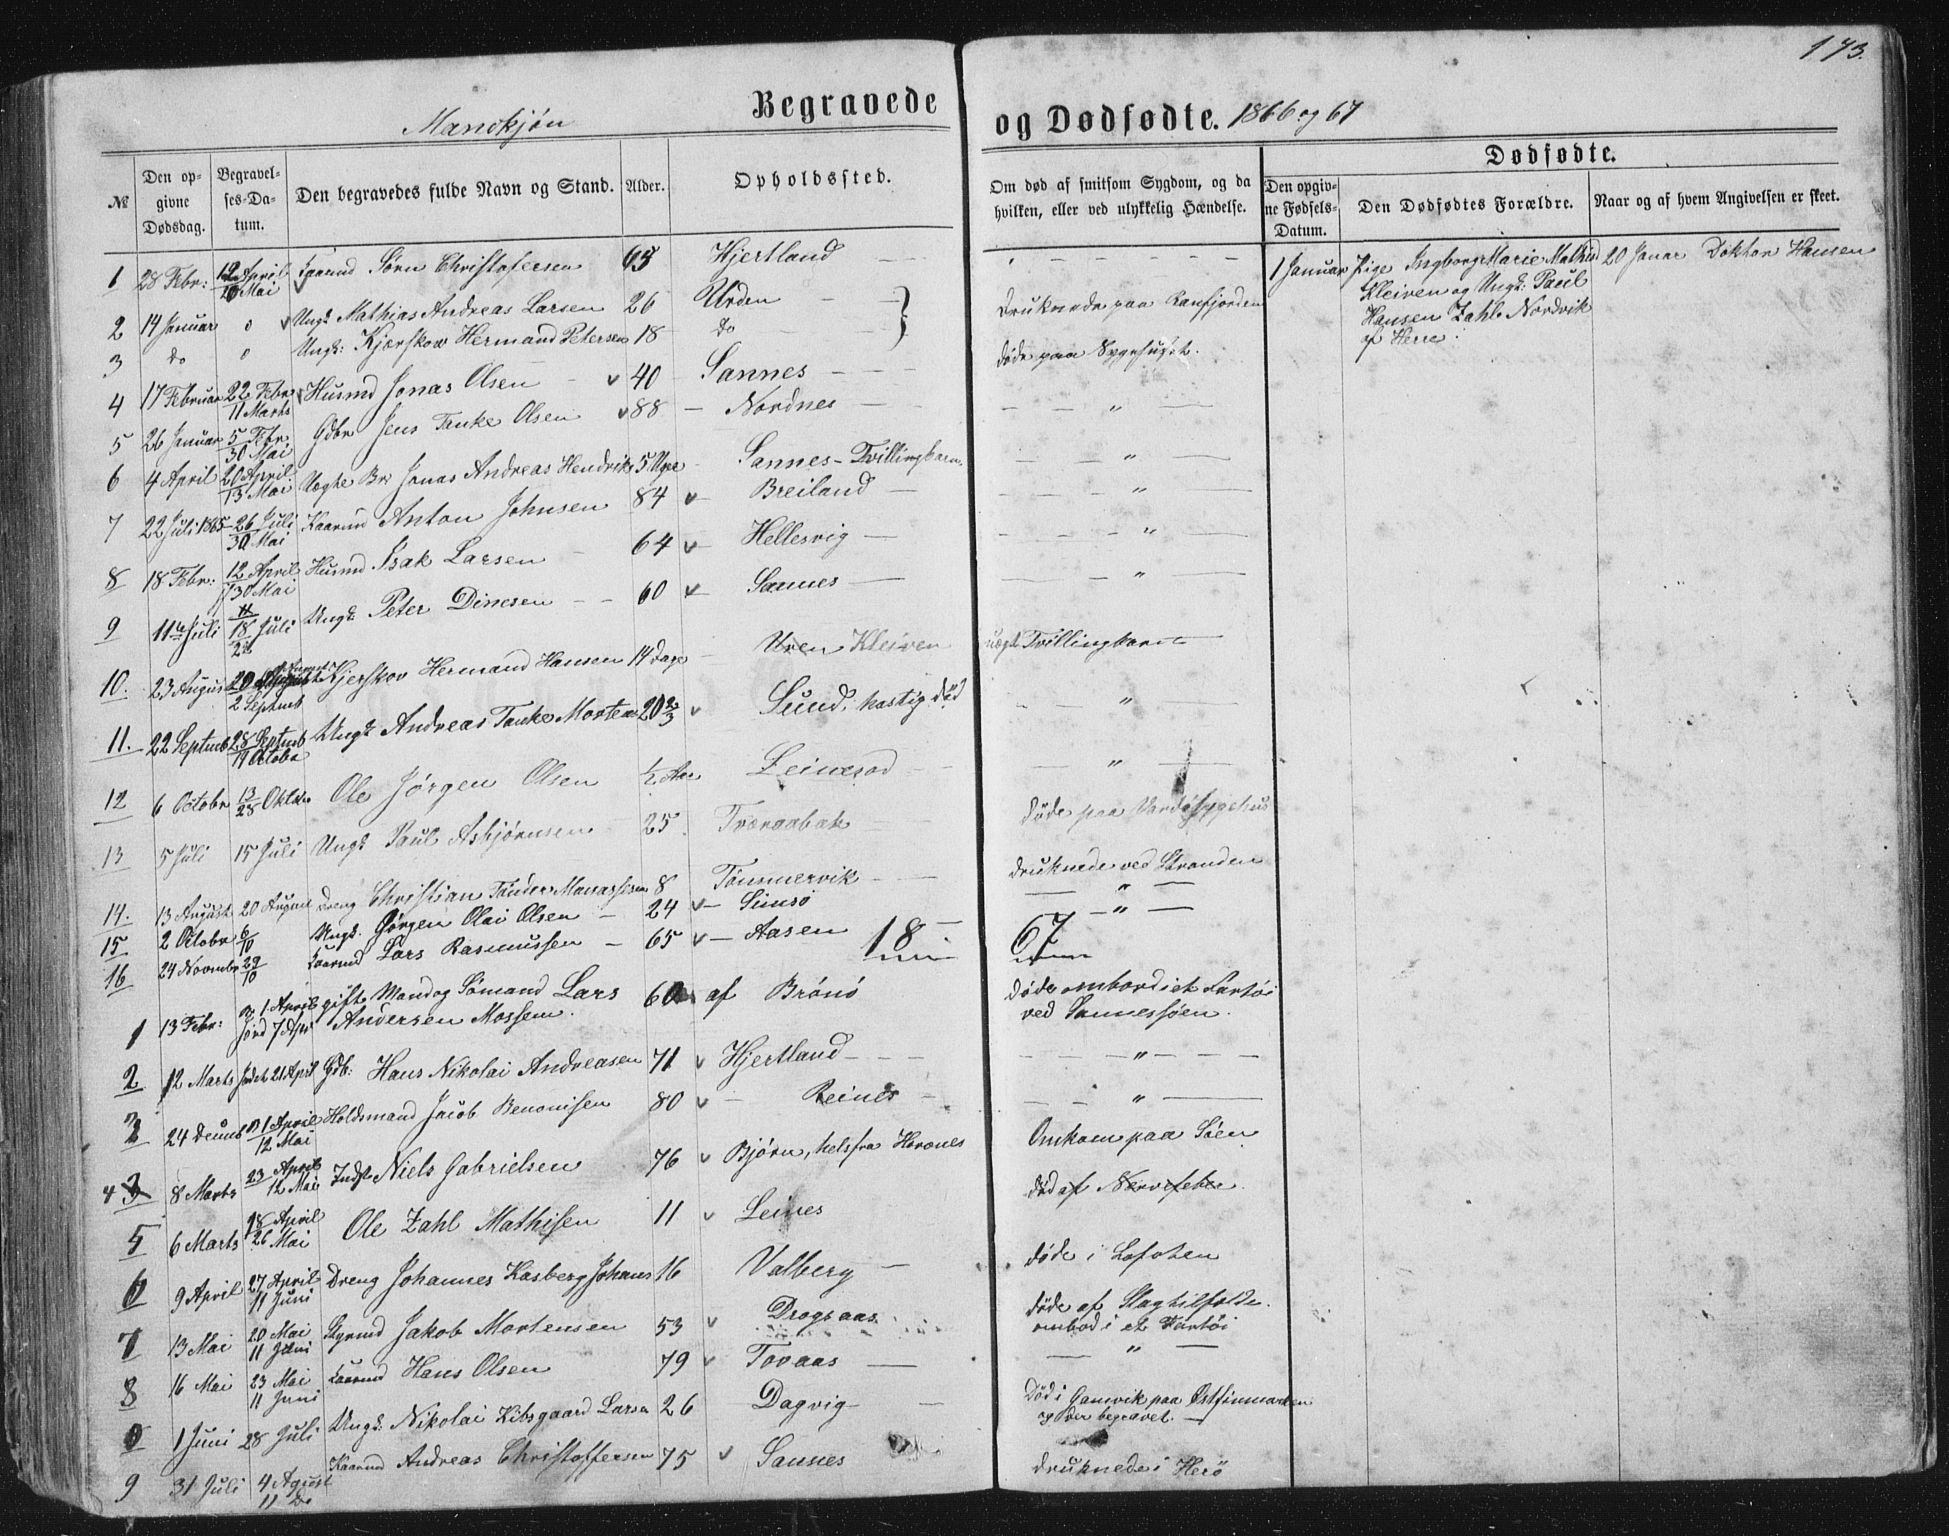 173.
Mandkjøn
Begravede og Dødfødte. 1866 og 67
Dødfødte.
№ Den opgivne Dødsdag. Begravelses-Datum. Den begravedes fulde Navn og Stand. Alder. Opholdssted. Om død af smitsom Sygdom, og da hvilken, eller ved ulykkelig Hændelse. Den opgivne Fødsels-Datum. Den Dødfødtes Forældre. Naar og af hvem Angivelsen er skeet.
1 28 Febr: 12 April 10 Mai Kaarmd Sørn Christofersen 65 Hjertland
1 Januar Pige Ingborg Marie Mathisd 20 Januar Doktor Hansen
Kleiven og Ungk: Paul
Hansen Zahl Nordvik
af Herre.
2 14 Januar 0 Ungk Mathias Andreas Larsen 26 Urden druknede paa Ranfjorden
3 do 0 Ungk: Kjærskow Hermand Petersen 18 do
4 17 Februar 22 Febr 11 Marts Husmd Jonas Olsen 40 Sannes døde paa Sygehuset.
5 26 Januar 5 Febr 30 Mai Gdbr Jens Tanke Olsen 88 Nordnes "
6 4 April 20 April 13 Mai Uægte Br: Jonas Andreas Hendriks 5 Uger Sannes - Tvillingbarn "
7 22 Juli 1865 26 Juli 30 Mai Kaarmd Anton Johnsen 84 Breiland "
8 18 Febr: 12 April 30 Mai Husmd Isak Larsen 64 Hellesvig "
9 11te Juli 18 Juli Ungk Peter Dinesen 60 Sannes "
10. 23 August 2 Septmb Kjerskov Hermand Hansen 14 Dage Uren Kleiven uægt Tvillingbarn
11. 22 Septmb 28 Septmb 14 Octobr Ungk Andreas Tanke Morten 20 2/3 Sund, hastig død "
12 6 Octobr 13/28 Oktbr Ole Jørgen Olsen ½ Aar Leinesod "
13 5 Juli 15 Juli Ungk Paul Asbjørnsen 25 Tveraabak døde paa Vardø Sygehus
14. 13 August 20 August Dreng Christian Tønder Manassesen 8 Tømmervik druknede ved Stranden
15 2 Octobr 6/10 Ungk. Jørgen Olai Olsen 24 Simsø "
16 24 Novmbr 29/10 Kaarmd Lars Rasmussen 65 Aasen "
18 67
1 13 Febr: 1 April Jord 7 Apr gift Mand og Sømand Lars Andersen Mossem. 60 af Brønø døde ombord i et Fartøi ved Sannessøen.
2 12 Marts Jordet 21 April Gdb: Hans Nikolai Andreasen 71 Hjertland "
3 24 Decmb 1 April 12 Mai Holdsmand Jacob Benonisen 80 Reines "
4 8 Marts 23 April 12 Mai Inds Niels Gabrielsen 76 Bjørn, hels fra Hovnes Omkom paa Søen
5 6 Marts 18 April 26 Mai Ole Zahl Mathisen 11 Leines død af Nervefeber.
6 9 April 27 April 11 Juni Dreng Johannes Kasberg Johans 16 Valberg døde i Lofoten
7 13 Mai 20 Mai 11 Juni Styrmd Jakob Mortensen 53 Dragsaas døde af Slagtilfælde. ombord i et Fartøi
8 16 Mai 23 Mai 11 Juni Kaarmd Hans Olsen 79 Tovaas "
1 Juni 28 Juli Ungk: Nikolai Kibsgaard Larsen 26 Dagvig Død i Gamvik paa Østfinmarken og der begravet.
9 31 Juli 4 August 11 do Kaarmd Andreas Christoffersen 75 Sannes druknede i Herø